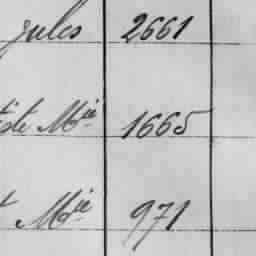 Jules 2661
Mie 1665
Mie 971